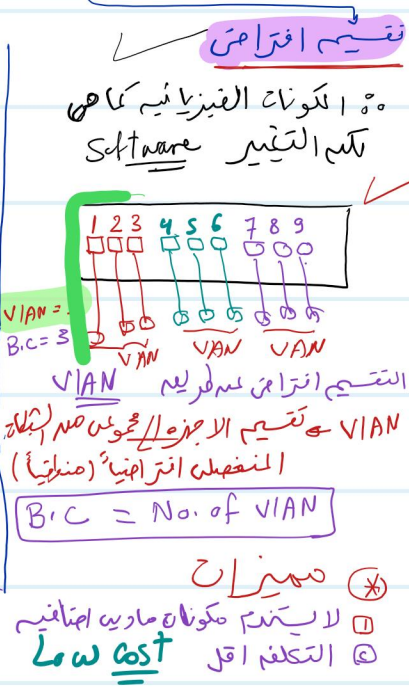 تقسيم افتراضى
∵ المكونات الفيزيائيه كما هى
لكن التغيير Software
1 2 3 4 5 6 7 8 9
VlAN =
B.C = 3
VAN VAN VAN
التقسيم افتراضى عن طريق VlAN
VlAN ← تقسيم الاجهزه // مجموعه من الشبكات
المنفصله افتراضياً (منطقياً)
B.C = No. of VlAN
* مميزات
1 لا يستخدم مكونات ماديه اضافيه
2 التكلفه اقل Low cost